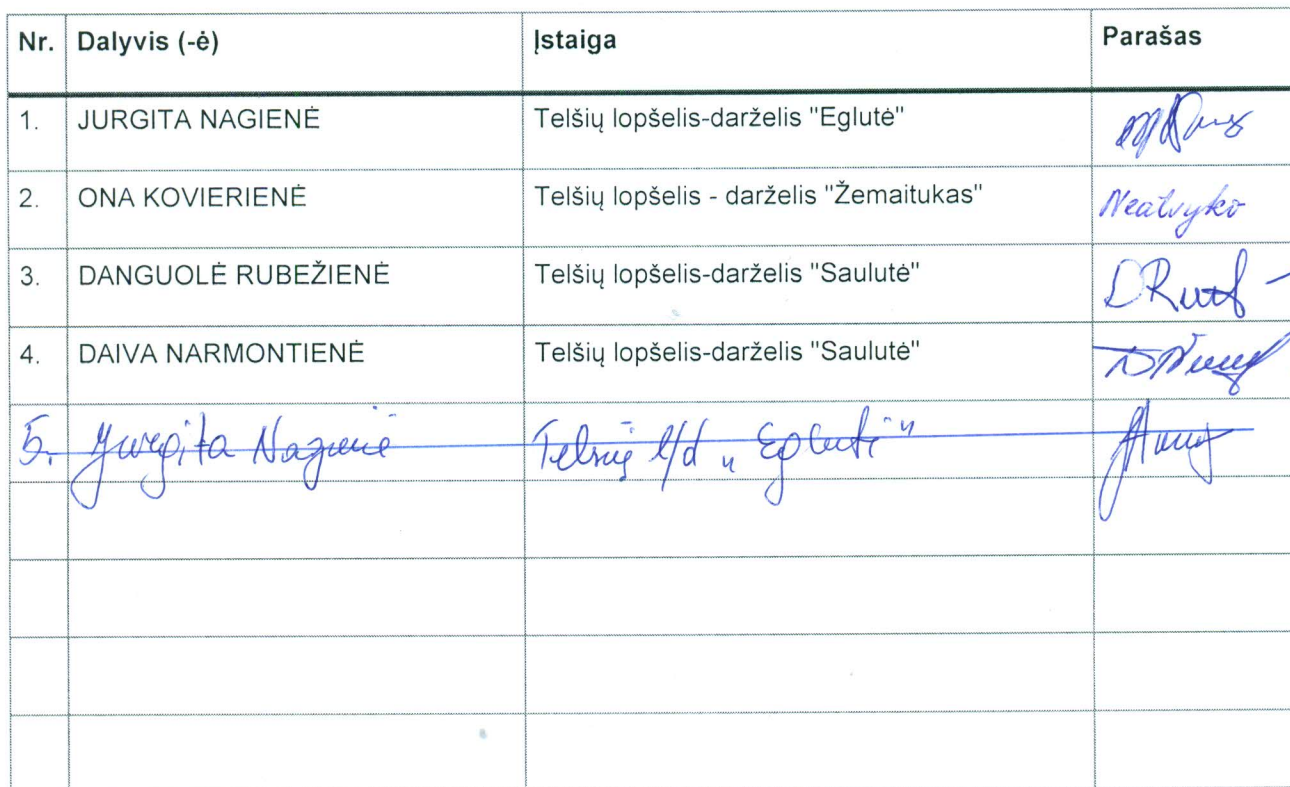 Nr. Dalyvis (-ė) Įstaiga Parašas
1. JURGITA NAGIENĖ Telšių lopšelis-darželis "Eglutė"
2. ONA KOVIERIENĖ Telšių lopšelis - darželis "Žemaitukas" Neatvyko
3. DANGUOLĖ RUBEŽIENĖ Telšių lopšelis-darželis "Saulutė"
4. DAIVA NARMONTIENĖ Telšių lopšelis-darželis "Saulutė"
5. Jurgita Nagienė Telšių l/d „Eglutė"